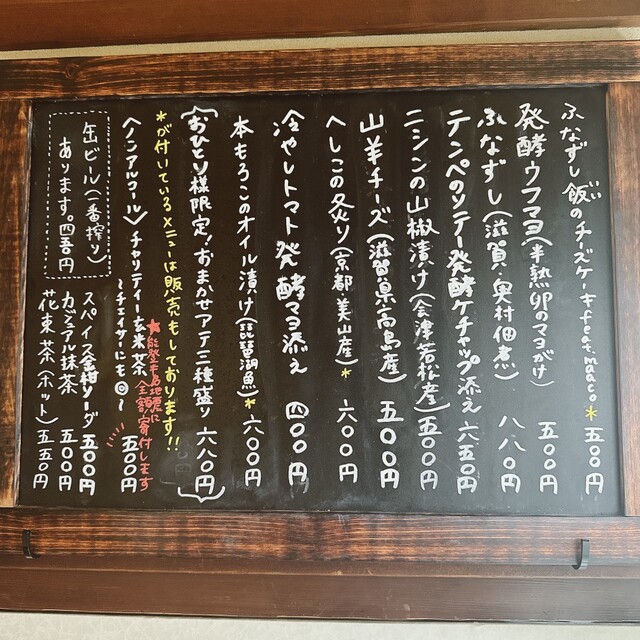 ふなずし飯のチーズケーキfeat.maaco* 五〇〇円
ばい
発酵ウフマヨ(半熟卵のマヨがけ) 五〇〇円
ふなずし(滋賀・奥村佃煮) 八八〇円
テンペのソテー発酵ケチャップ添え 六五〇円
ニシンの山椒漬け(会津若松産) 五〇〇円
山羊チーズ(滋賀県高島産) 五〇〇円
へしこの炙り(京都美山産)* 六〇〇円
冷やしトマト発酵マヨ添え 四〇〇円
本もろこのオイル漬け(琵琶湖魚)* 六〇〇円
(おひとり様限定!おまかせアテ三種盛り 六八〇円)
*が付いているメニューは販売もしております!!
〈ノンアルコール〉
チャリティー玄米茶 五〇〇円
~チェイサーにも◎~
★能登半島地震に全額寄付します
スパイス金柑ソーダ 五〇〇円
カジュアル抹茶 五〇〇円
花束茶(ホット) 五五〇円
缶ビール(一番搾り)
あります。四五〇円